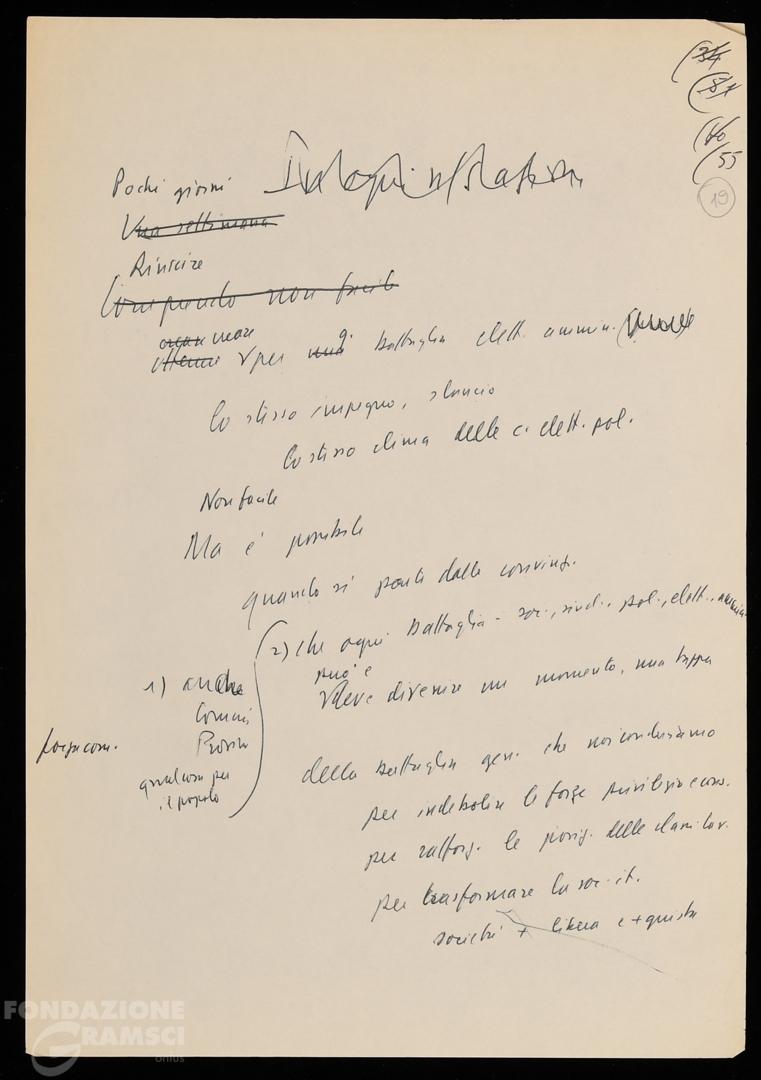 (34
(51
(40
(55
19
Pochi giorni
Una settimana
Riuscire
Compiendo non facile
creare
per una battaglia elett. ammin.
Lo stesso impegno, slancio
Lo stesso clima delle c. elett. pol.
Non facile
Ma è possibile
quando si parte dalle convinz.
2) che ogni battaglia - soc., sind., pol., elett., ammin.
può e
deve divenire un momento, una tappa
1) anche
Comuni
Provin
qualcosa per
il popolo
forza com.
della battaglia gen. che noi conduciamo
per indebolire le forze privilegio e cons.
per rafforz. le posiz. delle classi lav.
per trasformare la soc. it.
società + libera e + giusta
FONDAZIONE
GRAMSCI
onlus